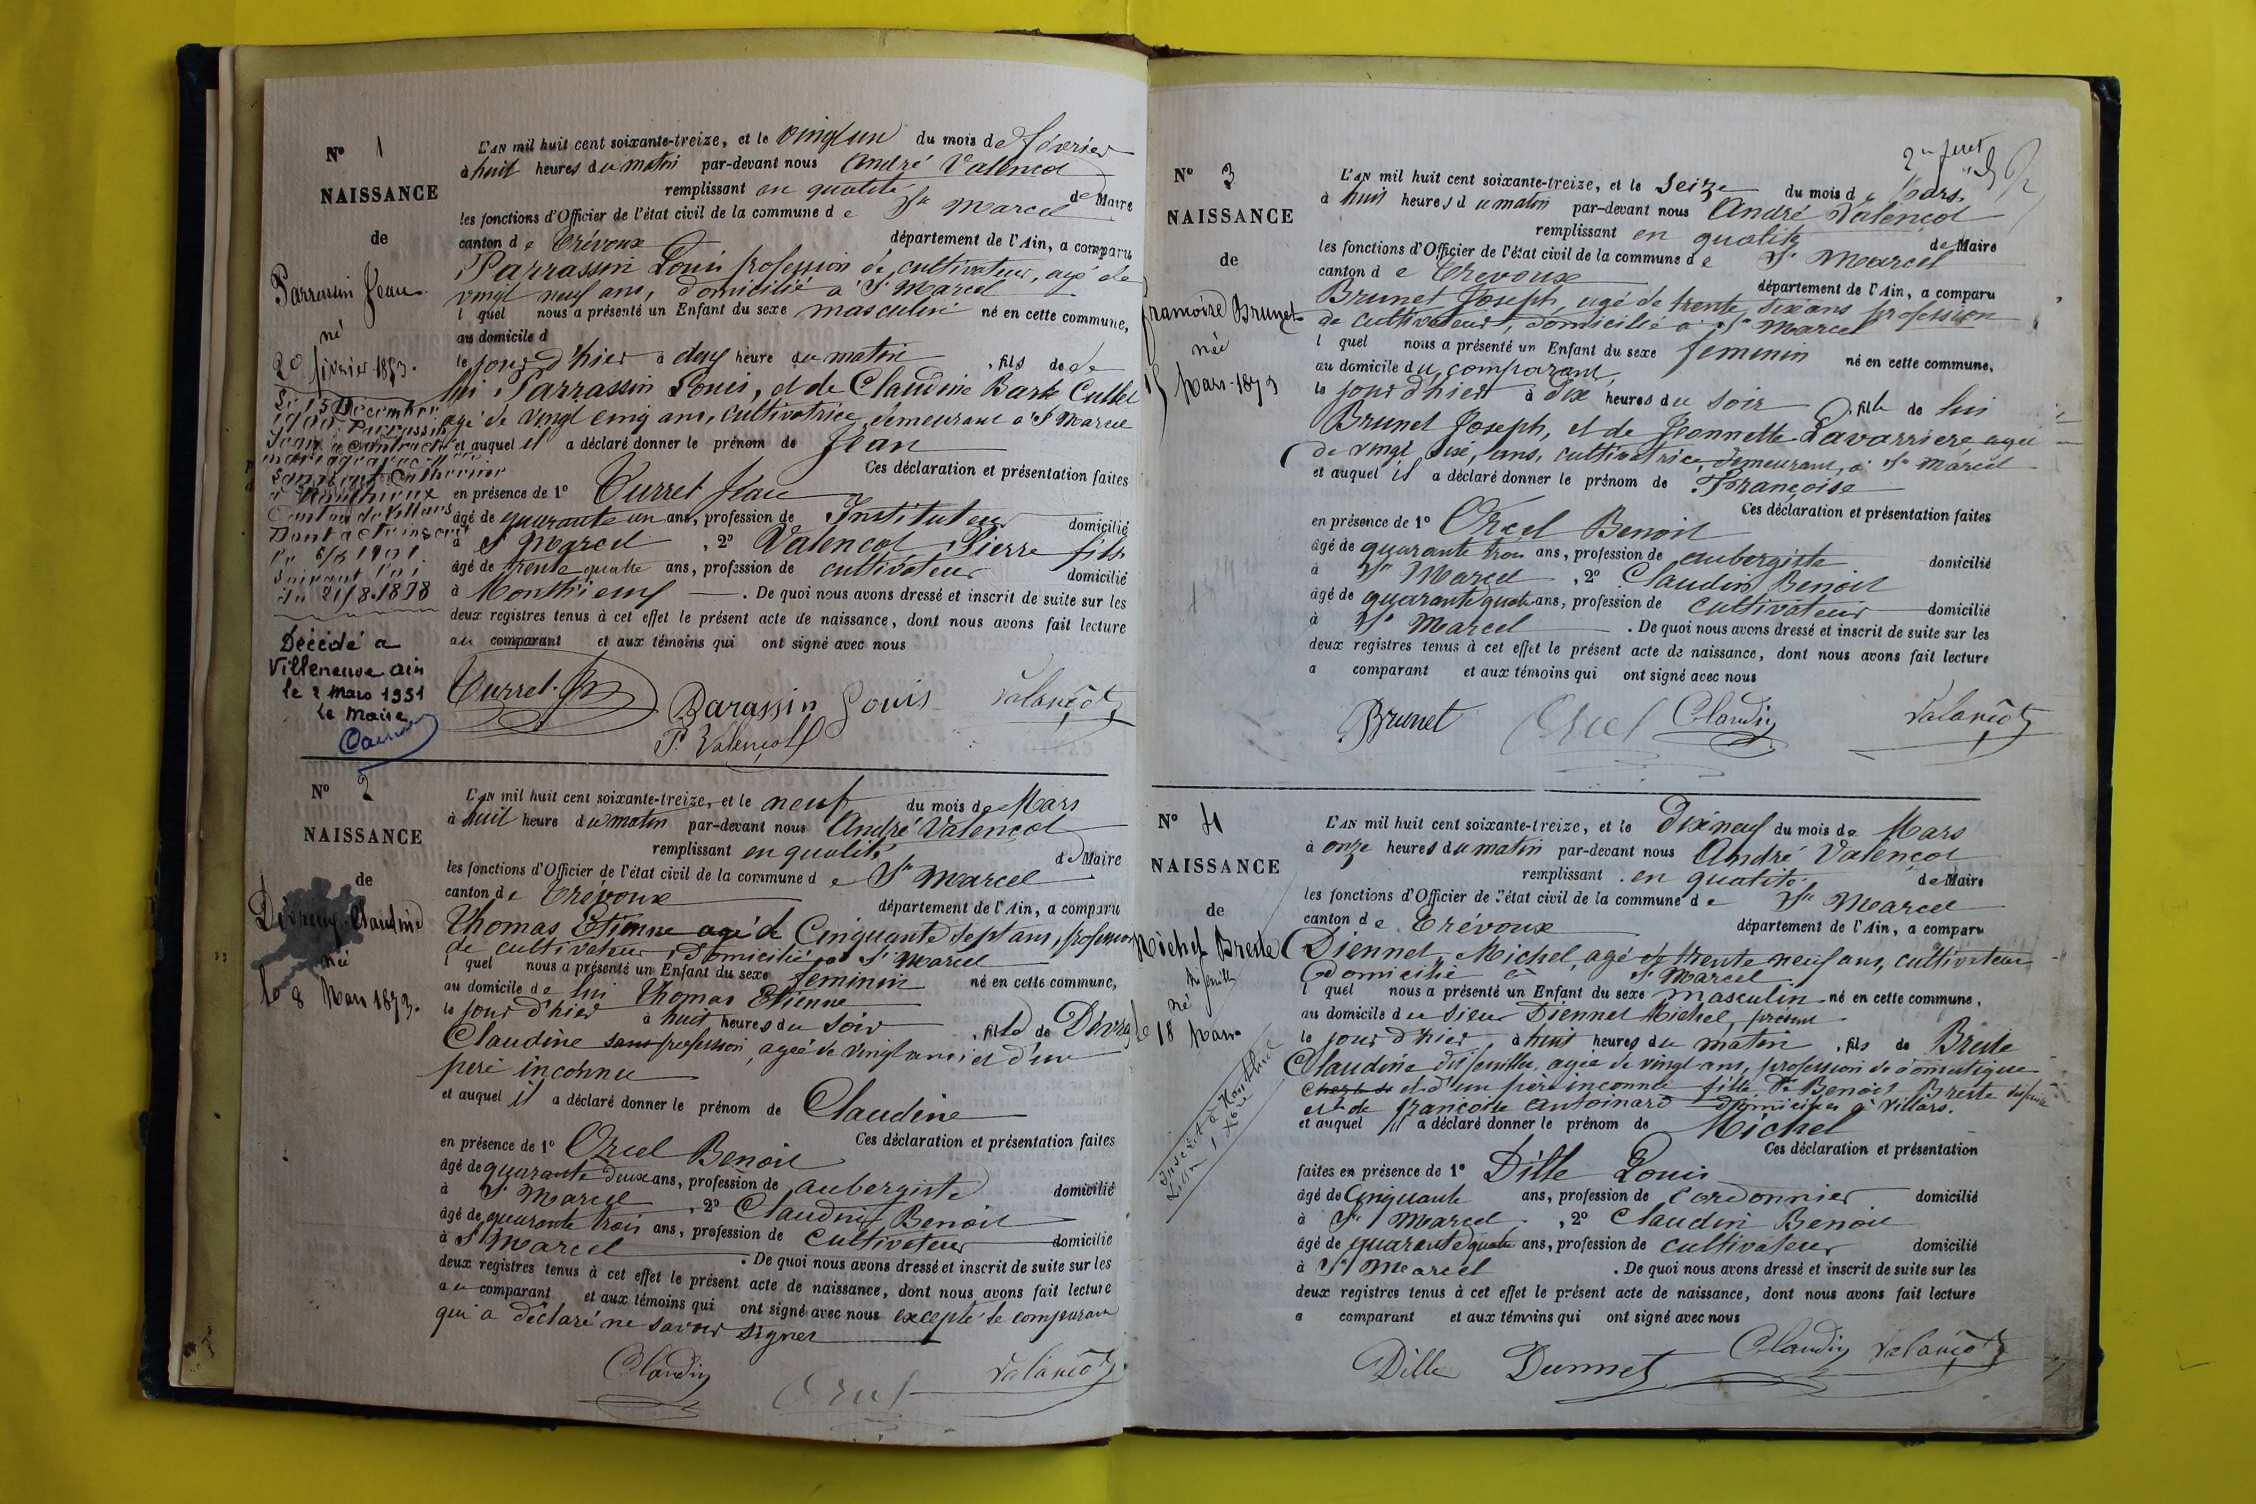 N° 1
NAISSANCE
de
Parrassin Jean
né
20 février 1873.
Le 15 Décembre
Parrassin
Jean a contracté
mariage avec Melle
Catherine
à Monthieux
Canton de Villars
Dont acte inscrit
le 6/3 1901
Suivant l'oi
du 21/8.1898
Décédé a
Villeneuve Ain
le 2 Mars 1951
le Maire
L'AN mil huit cent soixante-treize, et le vingt un du mois de février
à huit heures du matin par-devant nous André Valençot
remplissant en qualité de Maire
les fonctions d'Officier de l'état civil de la commune de St Marcel
canton de Trévoux département de l'Ain, a comparu
Parrassin Louis profession de cultivateur, agé de
vingt neuf ans, domicilié à St Marcel
lequel nous a présenté un Enfant du sexe masculin né en cette commune,
au domicile d
le jour d'hier à deux heure du matin, fils de de
lui Parrassin Louis, et de Claudine Barbe Cullet
agé de vingt cinq ans, cultivatrice demeurant à St Marcel
et auquel il a déclaré donner le prénom de Jean
Ces déclaration et présentation faites
en présence de 1° Curret Jean
âgé de quarante un ans, profession de Instituteur domicilié
à St Marcel, 2° Valençot Pierre fils
âgé de trente quatre ans, profession de cultivateur domicilié
à Monthieux. De quoi nous avons dressé et inscrit de suite sur les
deux registres tenus à cet effet le présent acte de naissance, dont nous avons fait lecture
au comparant et aux témoins qui ont signé avec nous
Curret Jn Parassin Louis Valançot
P. Valençot
N° 2
NAISSANCE
de
Claudine
née
le 8 Mars 1873.
L'AN mil huit cent soixante-treize, et le neuf du mois de Mars
à huit heure du matin par-devant nous André Valençot
remplissant en qualité de Maire
les fonctions d'Officier de l'état civil de la commune de St Marcel
canton de Trévoux département de l'Ain, a comparu
Thomas Etienne agé de Cinquante sept ans, profession
de cultivateur, domicilié à St Marcel
lequel nous a présenté un Enfant du sexe feminin né en cette commune,
au domicile de lui Thomas Etienne
le jour d'hier à huit heures du soir, fille de
Claudine sans profession, agée de vingt ans et d'un
père inconnu
et auquel il a déclaré donner le prénom de Claudine
Ces déclaration et présentation faites
en présence de 1° Orcel Benoit
âgé de quarante deux ans, profession de aubergiste domicilié
à St Marcel, 2° Claudin Benoit
âgé de quarante trois ans, profession de Cultivateur domicilié
à St Marcel. De quoi nous avons dressé et inscrit de suite sur les
deux registres tenus à cet effet le présent acte de naissance, dont nous avons fait lecture
au comparant et aux témoins qui ont signé avec nous excepté le comparant
qui a déclaré ne savoir signer
Claudin Orcel Valançot
N° 3
NAISSANCE
de
Françoise Brunet
née
15 Mars 1873
L'AN mil huit cent soixante-treize, et le Seize du mois de Mars.
à huit heures du matin par-devant nous André Valençot
remplissant en qualité de Maire
les fonctions d'Officier de l'état civil de la commune de St Marcel
canton de Trevoux département de l'Ain, a comparu
Brunet Joseph, agé de trente six ans profession
de cultivateur, domicilié à St Marcel
lequel nous a présenté un Enfant du sexe feminin né en cette commune,
au domicile du comparant
le jour d'hier à dix heures du soir, fille de lui
Brunet Joseph, et de Jeannette Lavarriere agée
de vingt six, ans, cultivatrice, demeurant, à St Marcel
et auquel il a déclaré donner le prénom de Françoise
Ces déclaration et présentation faites
en présence de 1° Orcel Benoit
âgé de quarante trois ans, profession de aubergiste domicilié
à St Marcel, 2° Claudin Benoit
âgé de quarante quatre ans, profession de cultivateur domicilié
à St Marcel. De quoi nous avons dressé et inscrit de suite sur les
deux registres tenus à cet effet le présent acte de naissance, dont nous avons fait lecture
a comparant et aux témoins qui ont signé avec nous
Brunet Orcel Claudin Valançot
N° 4
NAISSANCE
de
Michel Breste
né
le 18 Mars
L'AN mil huit cent soixante-treize, et le Dix neuf du mois de Mars
à onze heures du matin par-devant nous André Valençot
remplissant en qualité de Maire
les fonctions d'Officier de l'état civil de la commune de St Marcel
canton de Trévoux département de l'Ain, a comparu
Diennet, Michel, agé de trente neuf ans, cultivateur
domicilié à St Marcel
lequel nous a présenté un Enfant du sexe masculin né en cette commune,
au domicile du sieur Diennet Michel, présent
le jour d'hier, à huit heures du matin, fils de Breste
Claudine agée de vingt ans, profession de domestique
et d'un père inconnu fille de Benoit Breste
et de françoise antoinard domiciliés à Villars.
et auquel il a déclaré donner le prénom de Michel
Ces déclaration et présentation
faites en présence de 1° Dille Louis
âgé de Cinquante ans, profession de Cordonnier domicilié
à St Marcel, 2° Claudin Benoit
âgé de quarante quatre ans, profession de cultivateur domicilié
à St Marcel. De quoi nous avons dressé et inscrit de suite sur les
deux registres tenus à cet effet le présent acte de naissance, dont nous avons fait lecture
a comparant et aux témoins qui ont signé avec nous
Dille Claudin Valançot